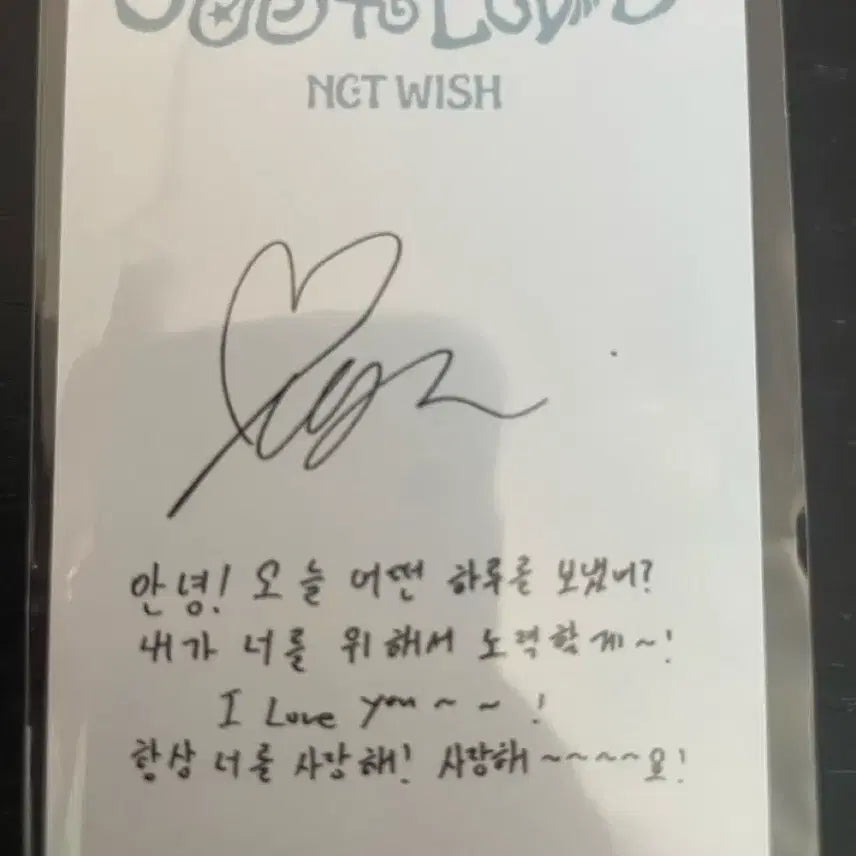 NCT WISH
안녕! 오늘 어떤 하루를 보냈너?
내가 너를 위해서 노력할게~!
I Love you~ ~ !
항상 너를 사랑해! 사랑해~~~~요!